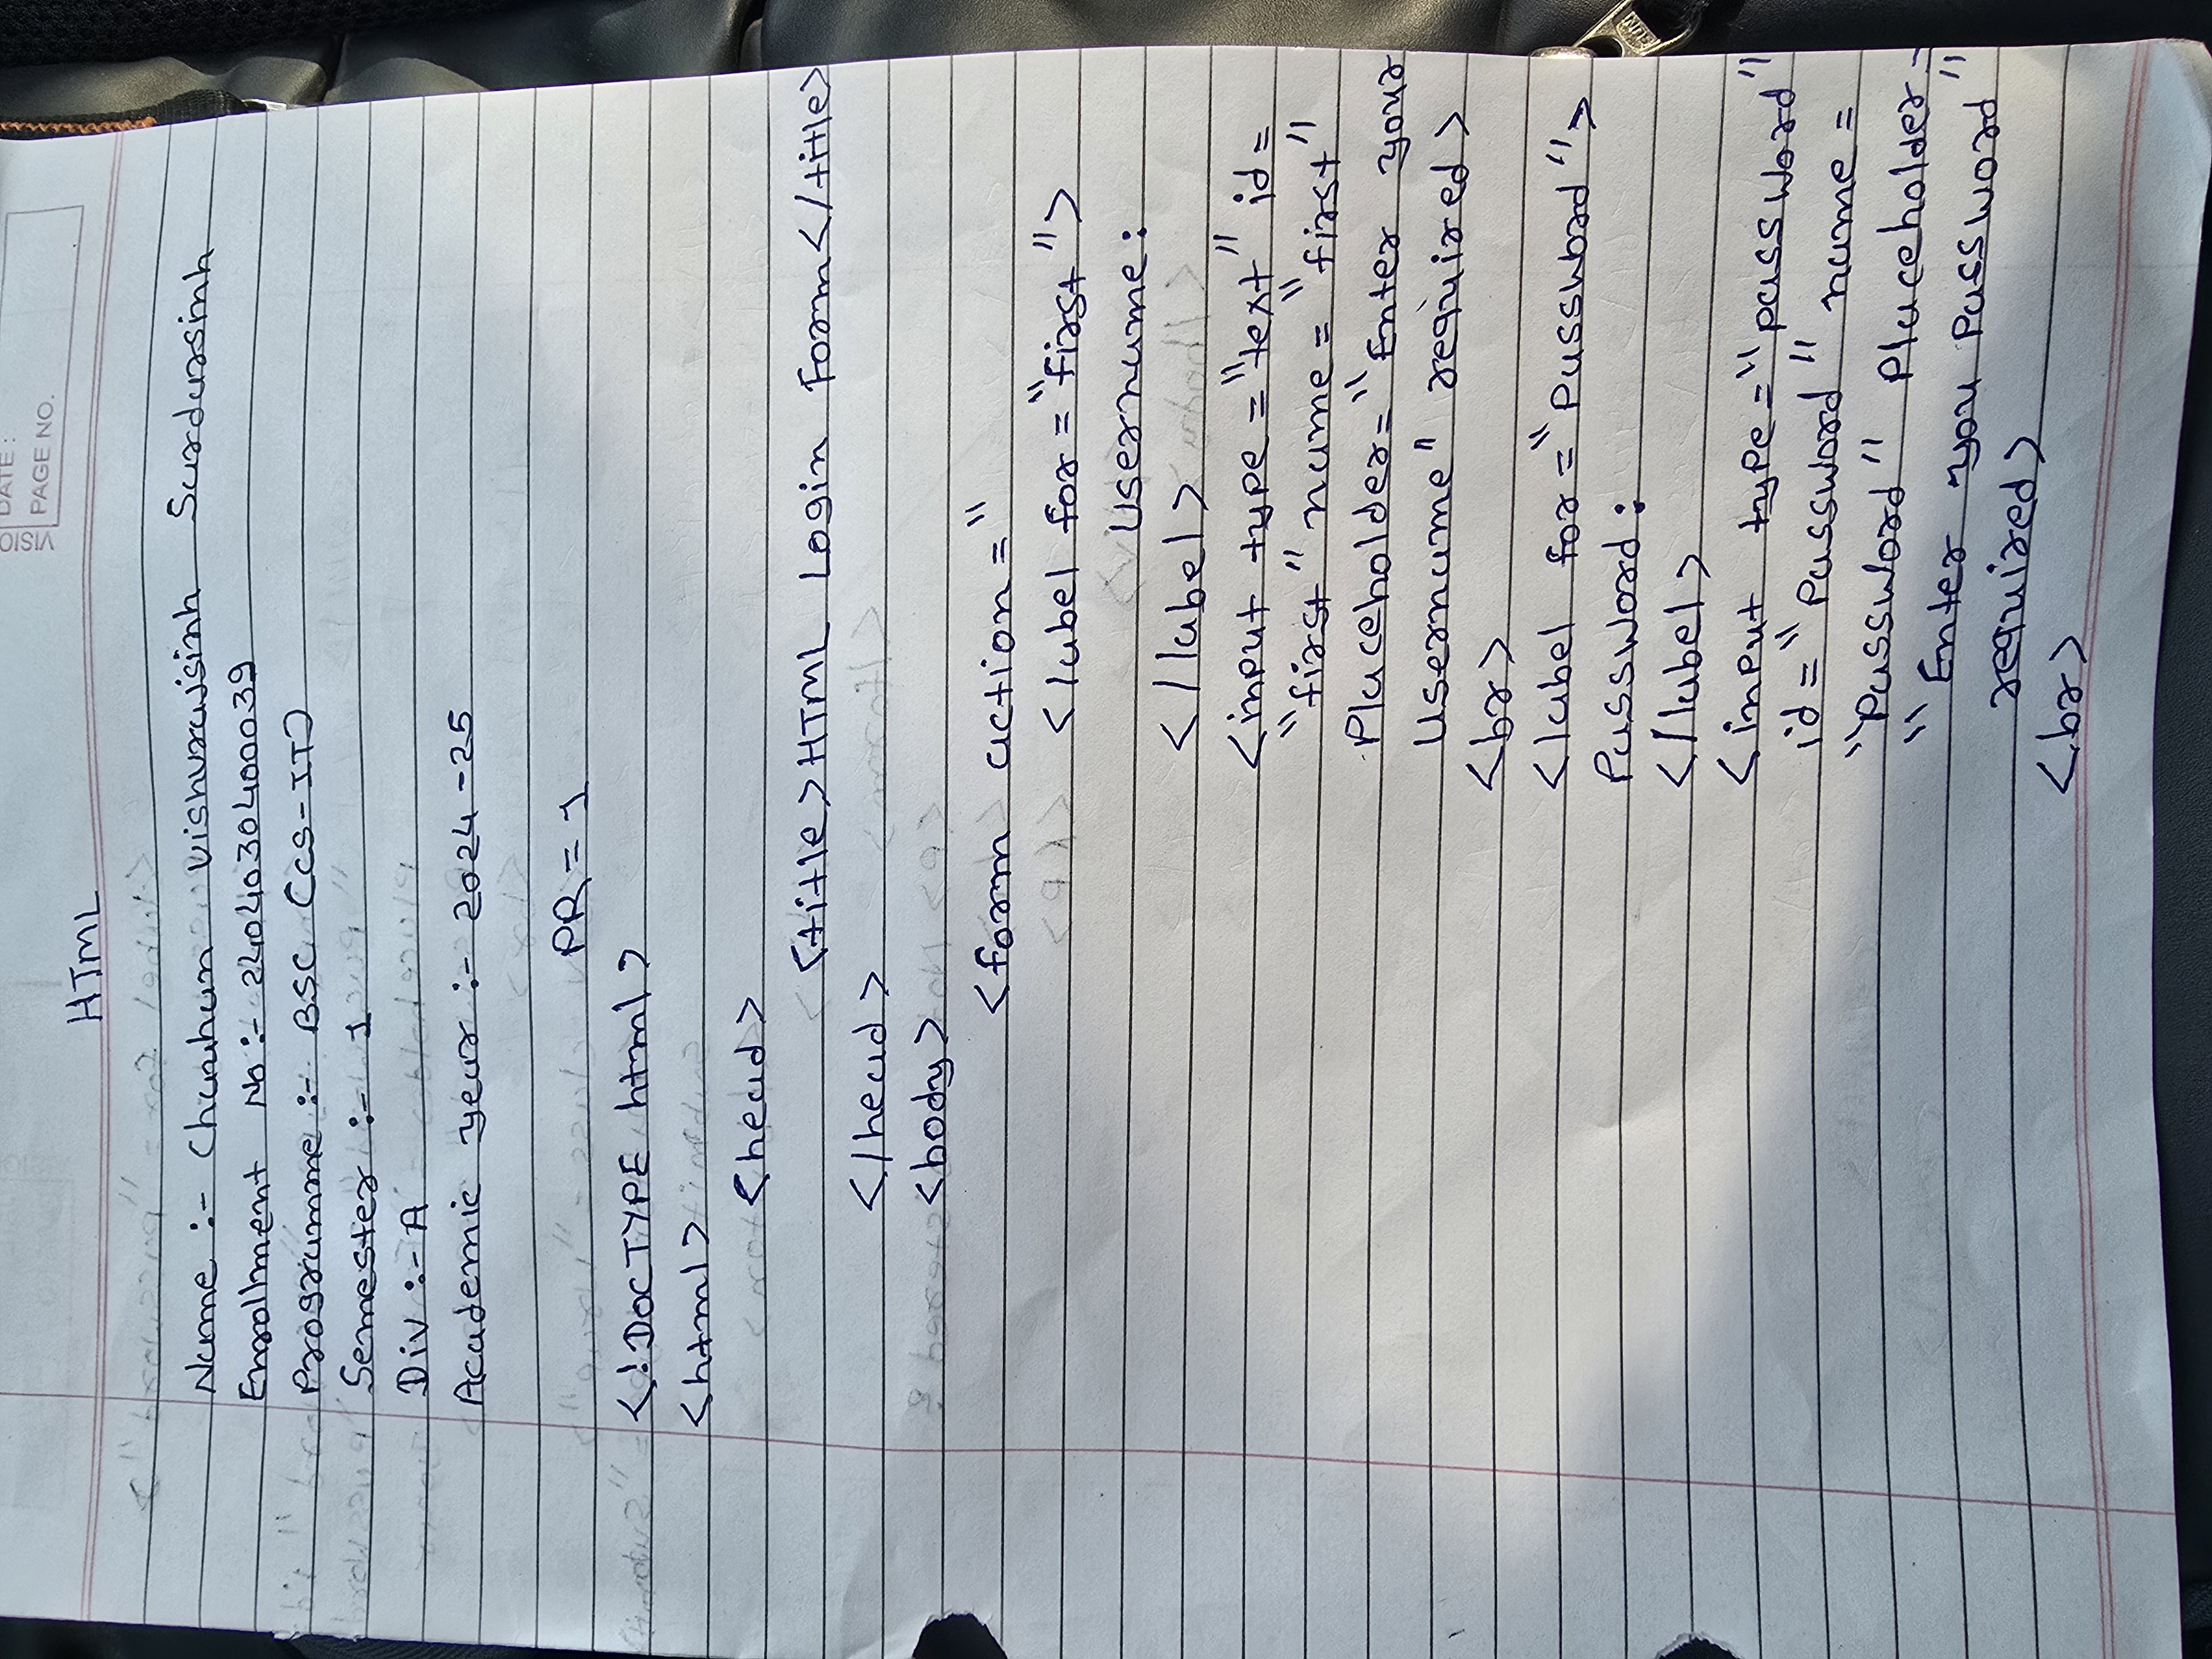 DATE :
VISIO
PAGE NO.
HTML
Name :- Chauhan Vishvrajsinh Sardarsinh
Enrollment No :- 2404030400039
Programme :- BSC (CS-IT)
Semester :- 1
Div :- A
Academic year :- 2024-25
PR = 1
<!DOCTYPE html>
<html>
<head>
<title>HTML Login Form</title>
</head>
<body>
<form action = "
<label for = "first">
Username:
</label>
<input type = "text" id =
"first" name = "first"
Placeholder = "Enter your
Username" required>
<br>
<label for = "Password">
Password:
</label>
<input type = "password"
id = "Password" name =
"Password" Placeholder =
"Enter you Password"
required>
<br>